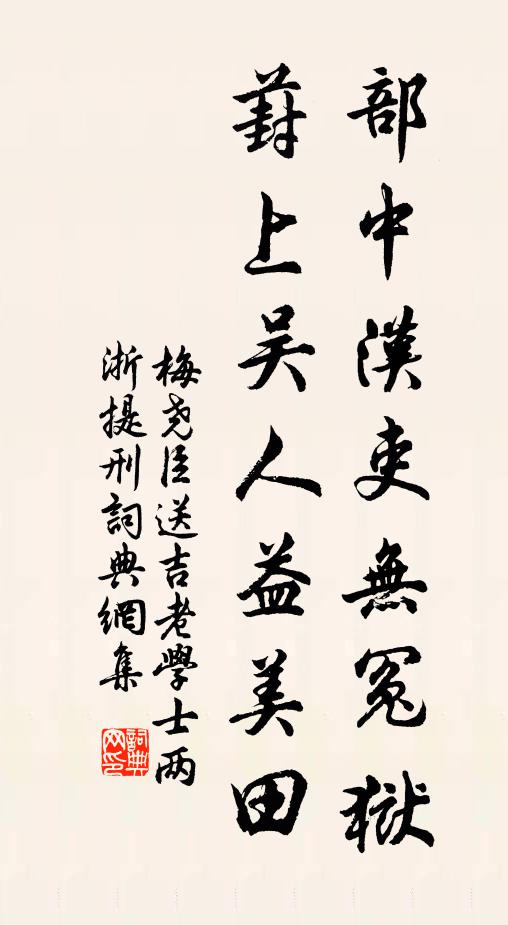 部中漢吏無冤獄
葑上吴人益美田
梅尧臣送吉老學士两
浙提刑詞典網集
詞典网印